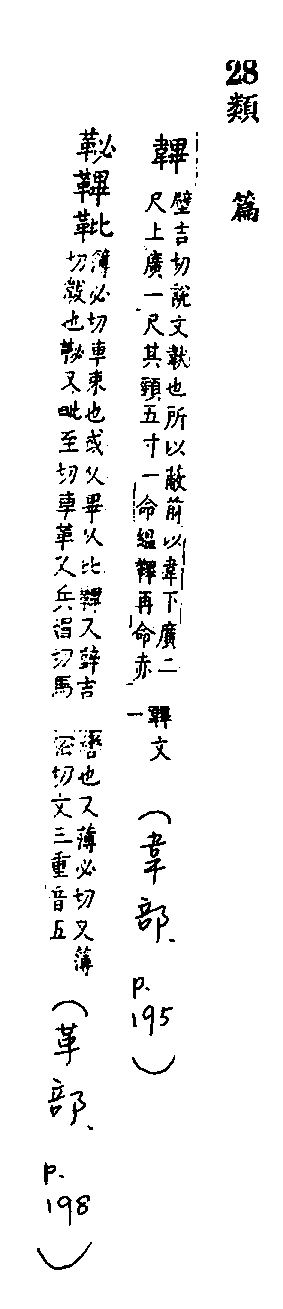 28 類篇
韠
壁吉切說文韍也所以蔽前以韋下廣二
尺上廣一尺其頸五寸一命縕韠再命赤
韠文
一
(韋部、p.195)
䩛鞸
簿必切車束也或从畢从比鞸又吉
切韍也䩛又毗至切車革又兵媚切馬
轡也又薄必切又簿
密切文三重音五
(革部、p.198)